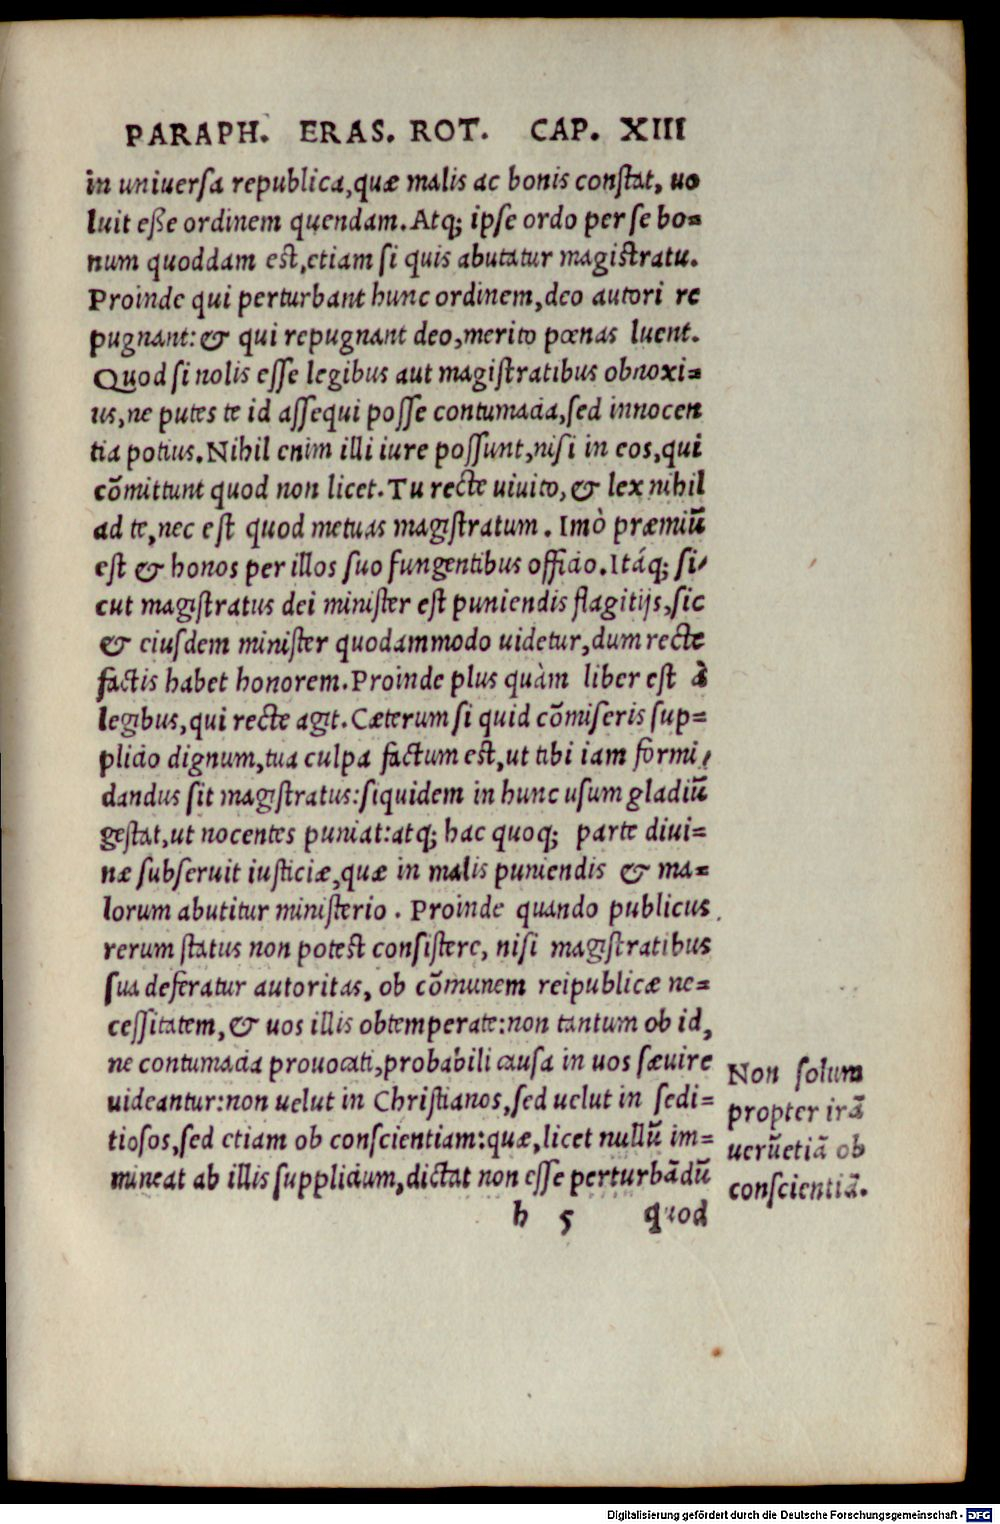 PARAPH. ERAS. ROT. CAP. XIII
in uniuersa republica,quæ malis ac bonis constat, uo
luit eße ordinem quendam. Atq; ipse ordo per se bo=
num quoddam est,etiam si quis abutatur magistratu.
Proinde qui perturbant hunc ordinem,deo autori re
pugnant: & qui repugnant deo,merito pœnas luent.
Quod si nolis esse legibus aut magistratibus obnoxi=
us,ne putes te id assequi posse contumacia,sed innocen
tia potius. Nihil enim illi iure possunt,nisi in eos,qui
cõmittunt quod non licet. Tu recte uiuito, & lex nihil
ad te,nec est quod metuas magistratum. Imò præmiũ
est & honos per illos suo fungentibus officio. Itáq; si/
cut magistratus dei minister est puniendis flagitijs,sic
& eiusdem minister quodammodo uidetur,dum recte
factis habet honorem. Proinde plus quàm liber est à
legibus,qui recte agit. Cæterum si quid cõmiseris sup=
plicio dignum,tua culpa factum est,ut tibi iam formi/
dandus sit magistratus:siquidem in hunc usum gladiũ
gestat,ut nocentes puniat:atq; hac quoq; parte diui=
næ subseruit iusticiæ,quæ in malis puniendis & ma=
lorum abutitur ministerio. Proinde quando publicus
rerum status non potest consistere, nisi magistratibus
sua deferatur autoritas, ob cõmunem reipublicæ ne=
cessitatem, & uos illis obtemperate:non tantum ob id,
ne contumacia prouocati,probabili causa in uos sæuire
uideantur:non uelut in Christianos,sed uelut in sedi=
tiosos,sed etiam ob conscientiam:quæ,licet nullũ im=
mineat ab illis supplicium,dictat non esse perturbãdũ
h 5 quod
Non solum
propter irã
uerũetiã ob
conscientiã.
Digitalisierung gefördert durch die Deutsche Forschungsgemeinschaft - DFG